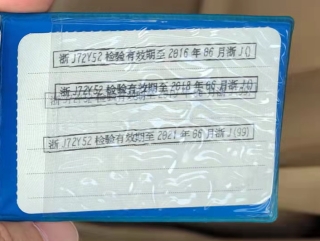 浙J72Y52检验有效期至2016年06月浙J()
浙J72Y52检验有效期至2018年06月浙J()
浙J72Y52检验有效期至2021年06月浙J(99)